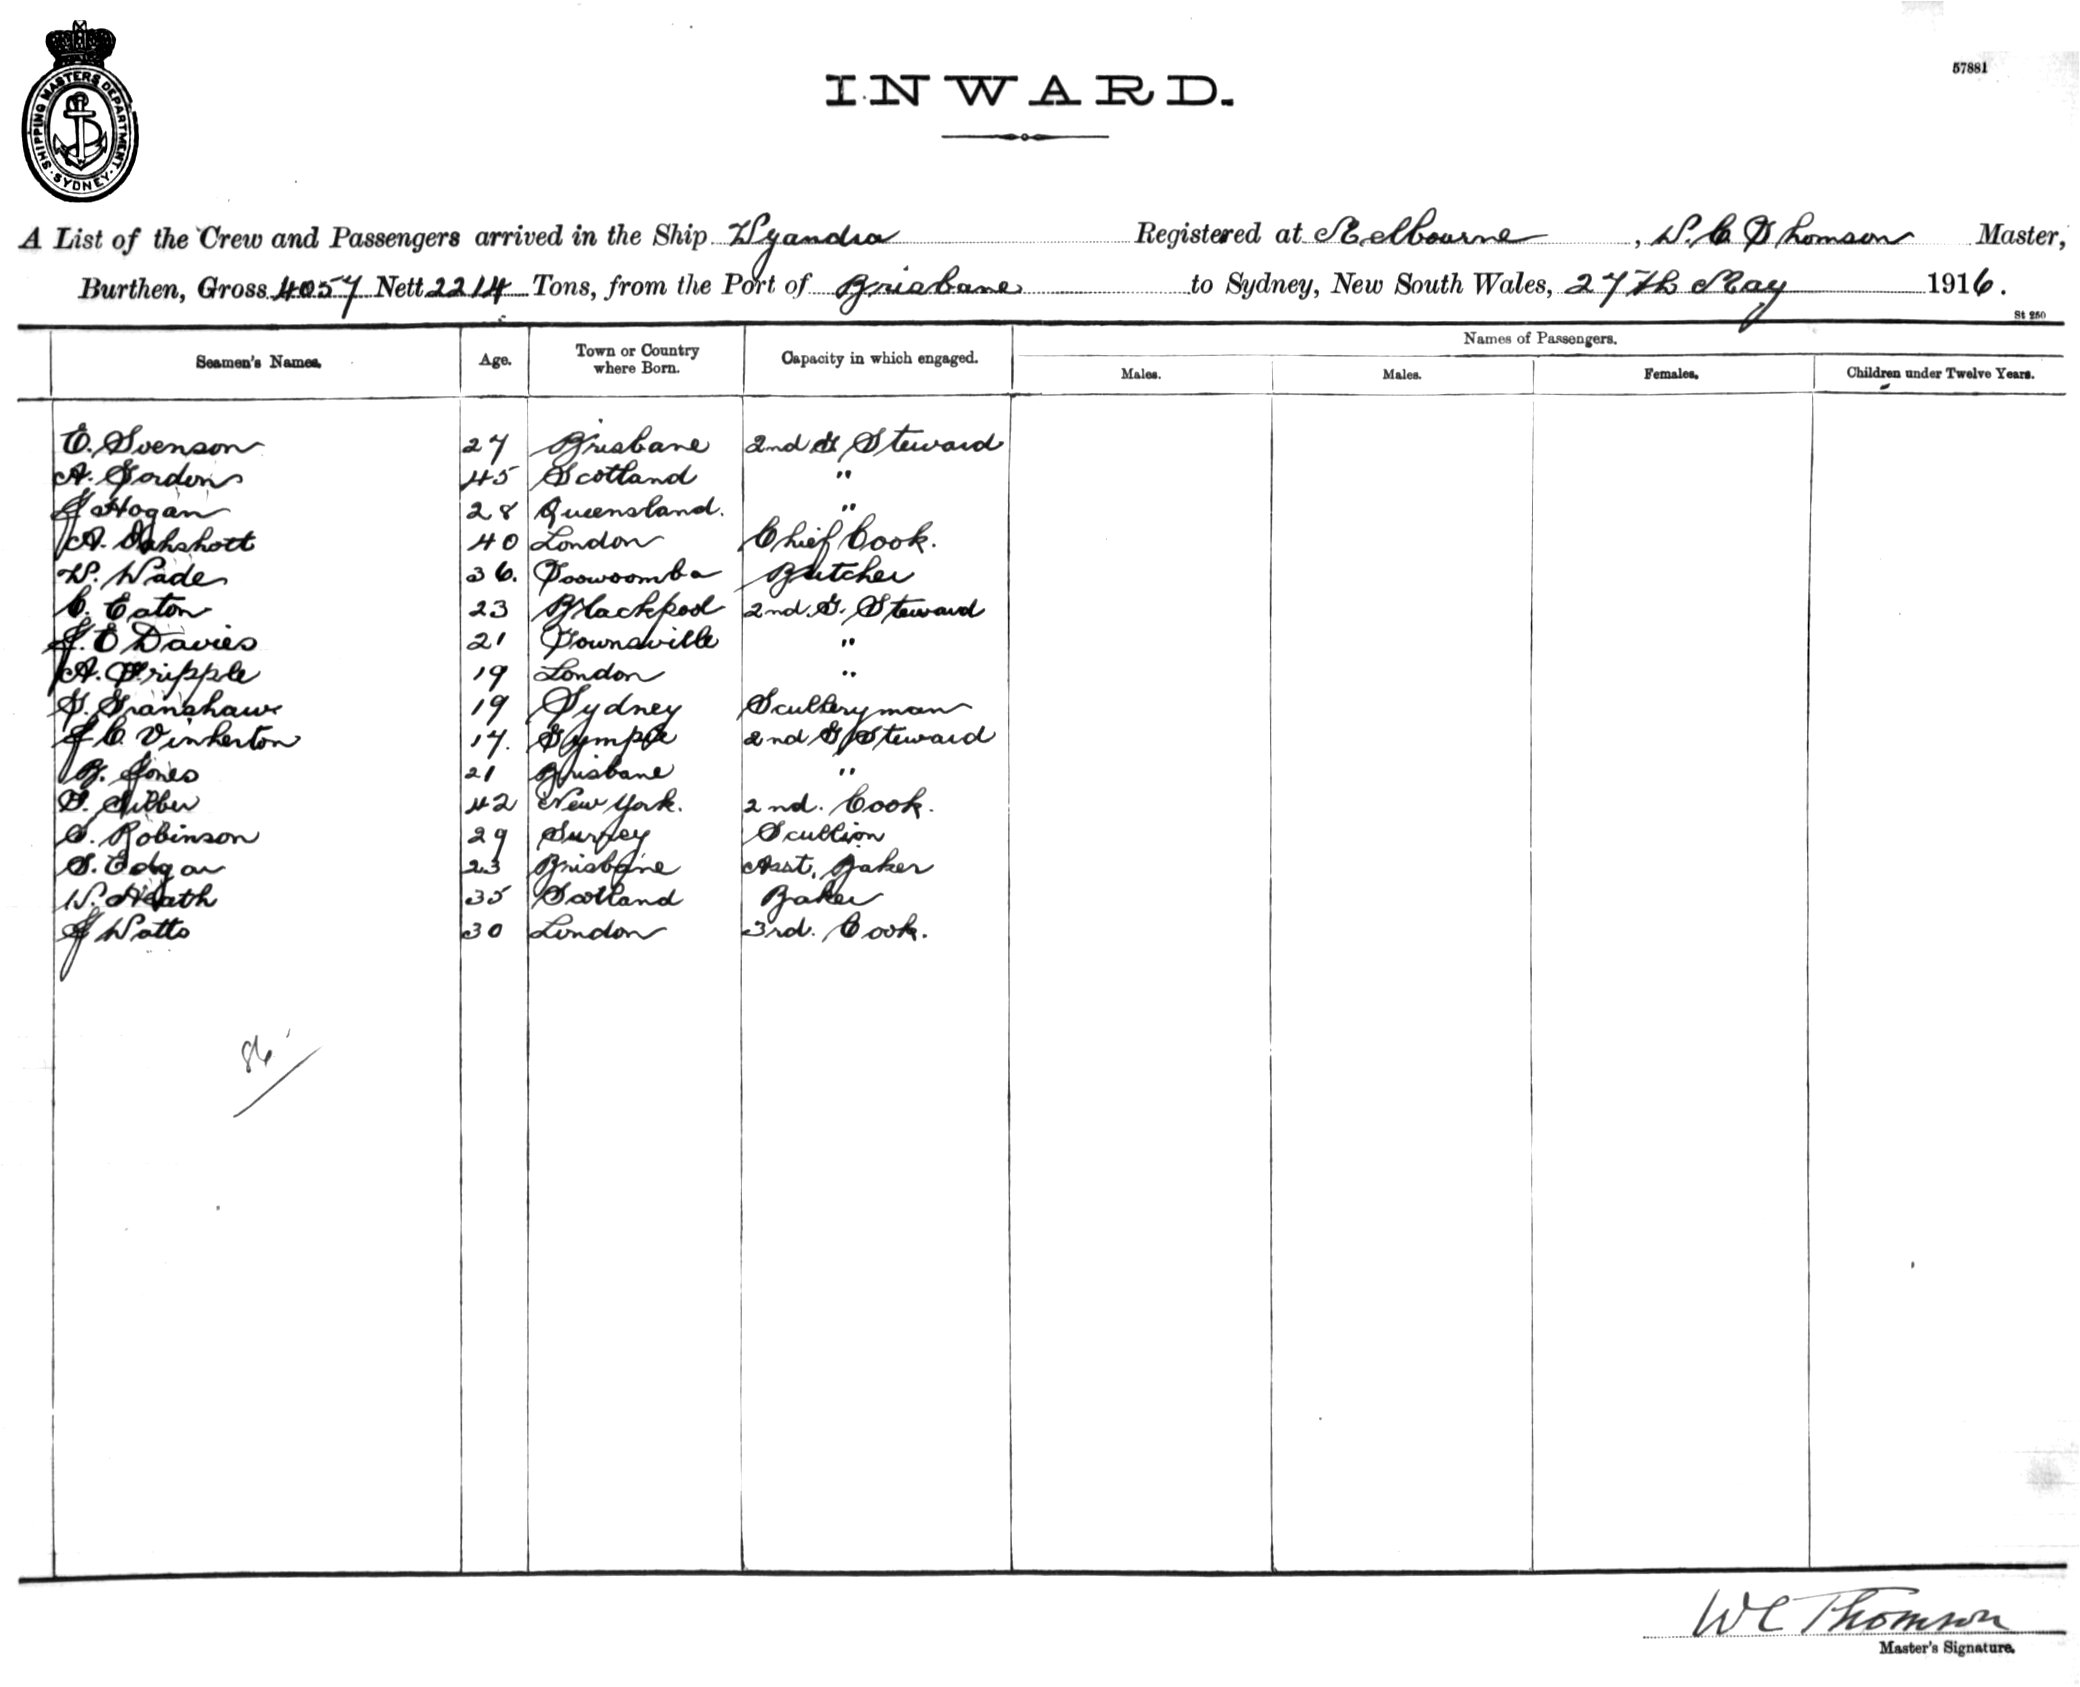 SHIPPING MASTERS DEPARTMENT · SYDNEY ·
57881
INWARD.
A List of the Crew and Passengers arrived in the Ship Wyandra Registered at Melbourne, W. C Thomson Master,
Burthen, Gross 4057 Nett 2214 Tons, from the Port of Brisbane to Sydney, New South Wales, 27th May 1916.
St 250
Seamen's Names. Age. Town or Country where Born. Capacity in which engaged. Names of Passengers.
Males. Males. Females. Children under Twelve Years.
E. Svenson 27 Brisbane 2nd G Steward
A. Gordon 45 Scotland "
J Hogan 28 Queensland. "
A. Oakshott 40 London Chief Cook.
W. Wade 36. Toowoomba Butcher
C. Eaton 23 Blackpool 2nd. G. Steward
J. E Davies 21 Townsville "
A. Tripple 19 London "
G. Granshaw 19 Sydney Sculleryman
J C. Vinkerton 17. Gympie 2nd G Steward
B. Jones 21 Brisbane "
42 New York. 2nd. Cook.
S. Robinson 29 Surrey Scullion
S. Edgar 23 Brisbane Asst. Baker
W. Heath 35 Scotland Baker
J Watts 30 London 3rd. Cook.
86
WC Thomson
Master's Signature.